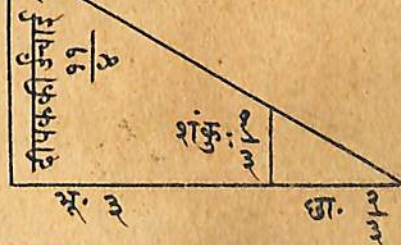 दीपककी उंचाई
११
४
शंकु: १
२
भू. ३
छा. २
३